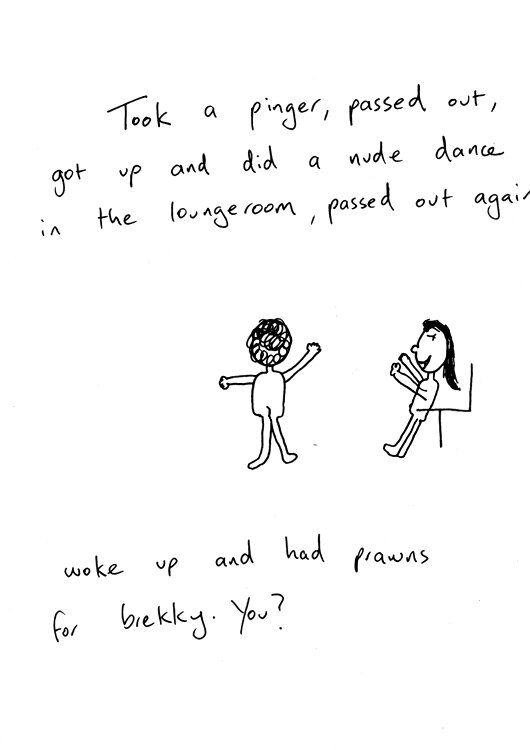 Took a pinger, passed out,
got up and did a nude dance
in the loungeroom, passed out again
woke up and had prawns
for brekky. You?